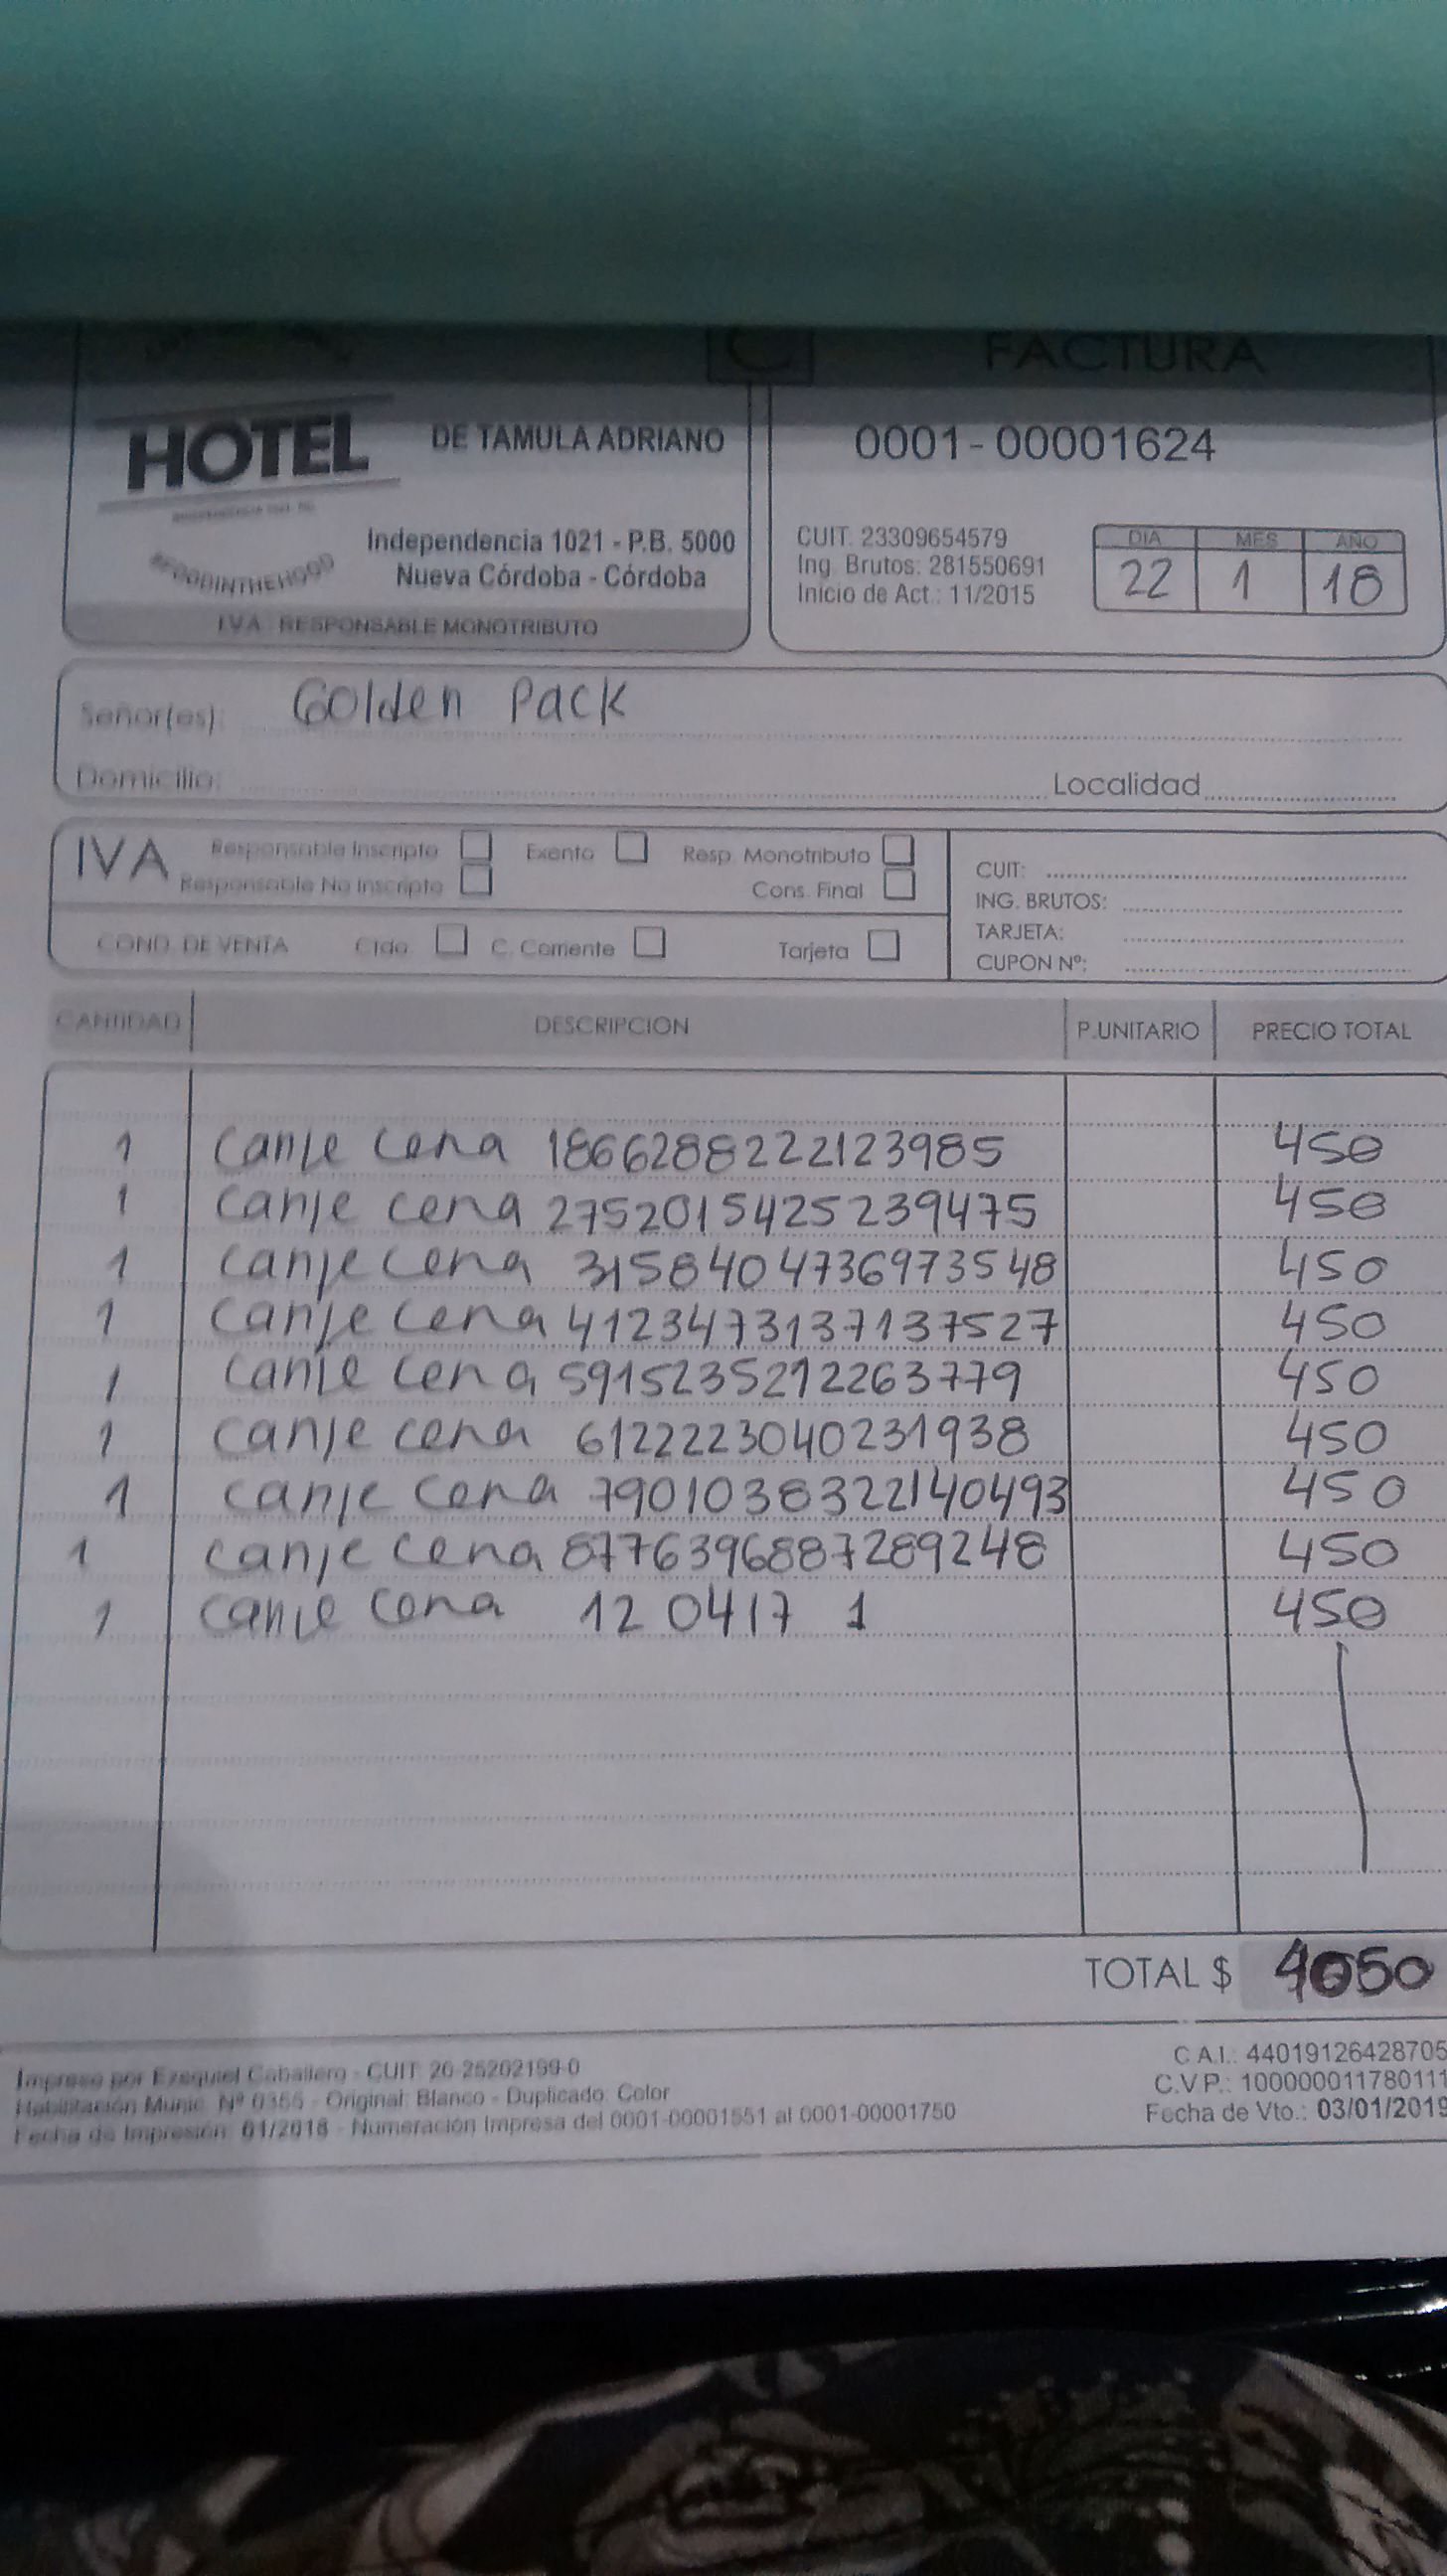 C
FACTURA
HOTEL
DE TAMULA ADRIANO
0001-00001624
Independencia 1021 - P.B. 5000
Nueva Córdoba - Córdoba
#FOODINTHEHOOD
I.V.A.: RESPONSABLE MONOTRIBUTO
CUIT: 23309654579
Ing. Brutos: 281550691
Inicio de Act.: 11/2015
DIA MES AÑO
22 1 18
Señor(es): Golden Pack
Domicilio: Localidad
IVA Responsable Inscripto Exento Resp. Monotributo
Responsable No Inscripto Cons. Final
COND. DE VENTA Ctdo. C. Corriente Tarjeta
CUIT:
ING. BRUTOS:
TARJETA:
CUPON Nº:
CANTIDAD DESCRIPCION P.UNITARIO PRECIO TOTAL
1 canje cena 1866288222123985 450
1 canje cena 2752015425239475 450
1 canje cena 3158404736973548 450
1 canje cena 4123473137137527 450
1 canje cena 5915235212263779 450
1 canje cena 6122223040231938 450
1 canje cena 7901038322140493 450
1 canje cena 8776396887289248 450
1 canje cena 12 0417 1 450
TOTAL $ 4050
Impreso por Ezequiel Caballero - CUIT: 20-25202199-0
Habilitación Munic. Nº 0355 - Original: Blanco - Duplicado: Color
Fecha de Impresión: 01/2018 - Numeración Impresa del 0001-00001551 al 0001-00001750
C.A.I.: 44019126428705
C.V.P.: 100000011780111
Fecha de Vto.: 03/01/2019